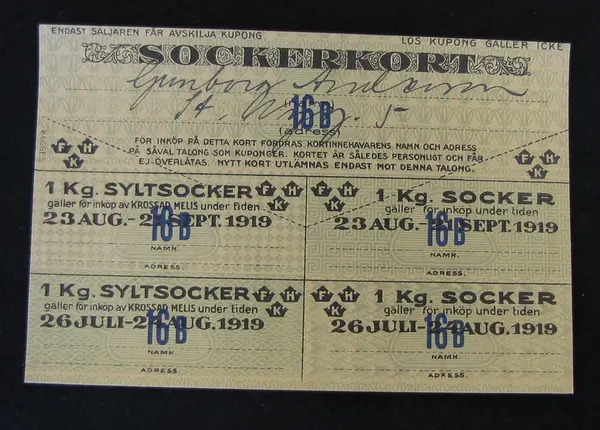 ENDAST SÄLJAREN FÅR AVSKILJA KUPONG
LÖS KUPONG GÄLLER ICKE
SOCKERKORT
Gunborg Andersson
16 B
5
(adress)
FÖR INKÖP PÅ DETTA KORT FORDRAS KORTINNEHAVARENS NAMN OCH ADRESS
PÅ SÅVÄL TALONG SOM KUPONGER. KORTET ÄR SÅLEDES PERSONLIGT OCH FÅR
EJ ÖVERLÅTAS. NYTT KORT UTLÄMNAS ENDAST MOT DENNA TALONG.
F H K
F H K
1 Kg. SYLTSOCKER F H K
gäller för inköp av KROSSAD MELIS under tiden
23 AUG.-21 SEPT. 1919
16 B
NAMN.
ADRESS.
F H K 1 Kg. SOCKER
gäller för inköp under tiden
23 AUG.-21 SEPT. 1919
16 B
NAMN.
ADRESS.
1 Kg. SYLTSOCKER F H K
gäller för inköp av KROSSAD MELIS under tiden
26 JULI-24 AUG. 1919
16 B
NAMN.
ADRESS.
F H K 1 Kg. SOCKER
gäller för inköp under tiden
26 JULI-24 AUG. 1919
16 B
NAMN.
ADRESS.